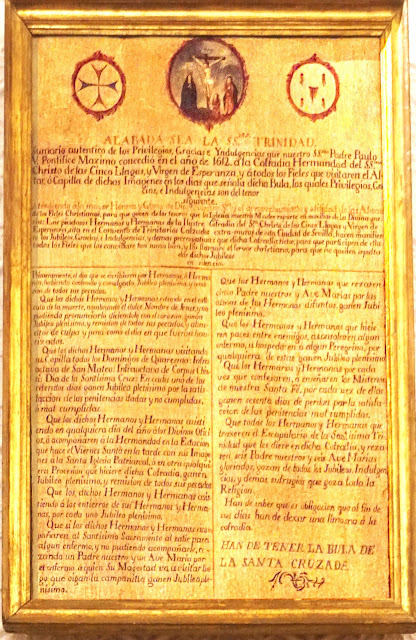 ALABADA SEA LA SS.ma TRINIDAD.
Sumario autentico de los Privilegios, Gracias e Yndulgencias que nuestro SS.mo Padre Paulo
V. Pontifice Maximo concedió en el año de 1612. á la Cofradia Hermandad del SS.mo
Christo de las Cinco Llagas, y Virgen de Esperanza, y á todos los Fieles que visiten el Al-
tar, ó Capilla de dichas Imagenes en los dias que señala dicha Bula, los quales Privilegios, Gra-
cias, é Indulgencias son del tenor
siguiente.
los Fieles Christianos, para que gozen de los tesoros que la Iglesia nuestra Madre
Hermanos y Hermanas de la Cofradia del SS.mo Christo de las Cinco Llagas y Virgen de
Esperanza, sita en el Convento de Trinitarios Calzados extra-muros de esta Ciudad de Sevilla,
los Jubileos, Gracias, e Indulgencias, y demas
todos los Fieles que
de dicho Jubileo
Primeramente, el dia que se escribieren por Hermanos, ó Herma-
nas, habiendo confesado y comulgado, Jubileo plenisimo, y remi-
sion de todos sus pecados.
Que los dichos Hermanos, y Hermanas estando en el articu-
lo de la muerte, invocando el dulce Nombre de Jesus, y no
pudiendo pronunciarlo diciendole con el corazon, ganen
Jubileo plenisimo, y remision de todos sus pecados, y
de culpa y pena, como el dia en que fueron bau-
tizados.
Que los dichos Hermanos y Hermanas visitando
su Capilla todos los Domingos de Quaresma: Infra-
octava de San Mateo: Infraoctava de Corpus Chris-
ti: Dia de la Santisima Cruz: En cada uno de los
referidos dias ganen Jubileo plenisimo por la satis-
faccion de las penitencias dadas y no cumplidas,
ó mal cumplidas.
Que los dichos Hermanos y Hermanas asisti-
endo en qualquiera dia del año á los Divinos Ofici-
os, ó acompañaren á la Hermandad en la Estacion
que hace el Viernes Santo en la tarde con sus Image-
nes á la Santa Iglesia Patriarcal, ó en otra qualquie-
ra Procesion que hiciere dicha Cofradia, ganen
Jubileo plenisimo, y remision de todos sus pecados.
Que los dichos Hermanos y Hermanas asis-
tiendo á los entierros de sus Hermanos y Herma-
nas, por cada uno Jubileo plenisimo.
Que si los dichos Hermanos y Hermanas acom-
pañaren al Santisimo Sacramento al salir para
algun enfermo, y no pudiendo acompañarle, re-
zando un Padre nuestro y un Ave Maria por
el enfermo á quien Su Magestad va á visitar lue-
go que oigan la campanita ganen Jubileo ple-
nisimo.
Que los Hermanos y Hermanas que rezaren
cinco Padre nuestros y Ave Marias por las
almas de los Hermanos difuntos, ganen Jubi-
leo plenisimo.
Que los Hermanos y Hermanas que hicie-
ren paces entre enemigos, asistiendo en algun
enfermo, u hospedaren á algun Peregrino, por
qualquiera de estas ganen Jubileo plenisimo.
Que los Hermanos y Hermanas por cada
vez que confesaren, ó enseñaren los Misterios
de nuestra Santa Fe, por cada vez de ellas
ganen sesenta dias de perdon por la satisfa-
ccion de las penitencias mal cumplidas.
Que todos los Hermanos y Hermanas que
traxeren el Escapulario de la San.ma Tri-
nidad que les diere en dicha Cofradia, y rezaren
seis Padre nuestros y seis Ave Marias
gloriados, gozan de todos los Jubileos, Indulgen-
cias, y demas sufragios que goza toda la
Religion.
Han de saber que es obligacion que al fin de
sus dias han de dexar una limosna á la
cofradia.
HAN DE TENER LA BULA DE
LA SANTA CRUZADA.